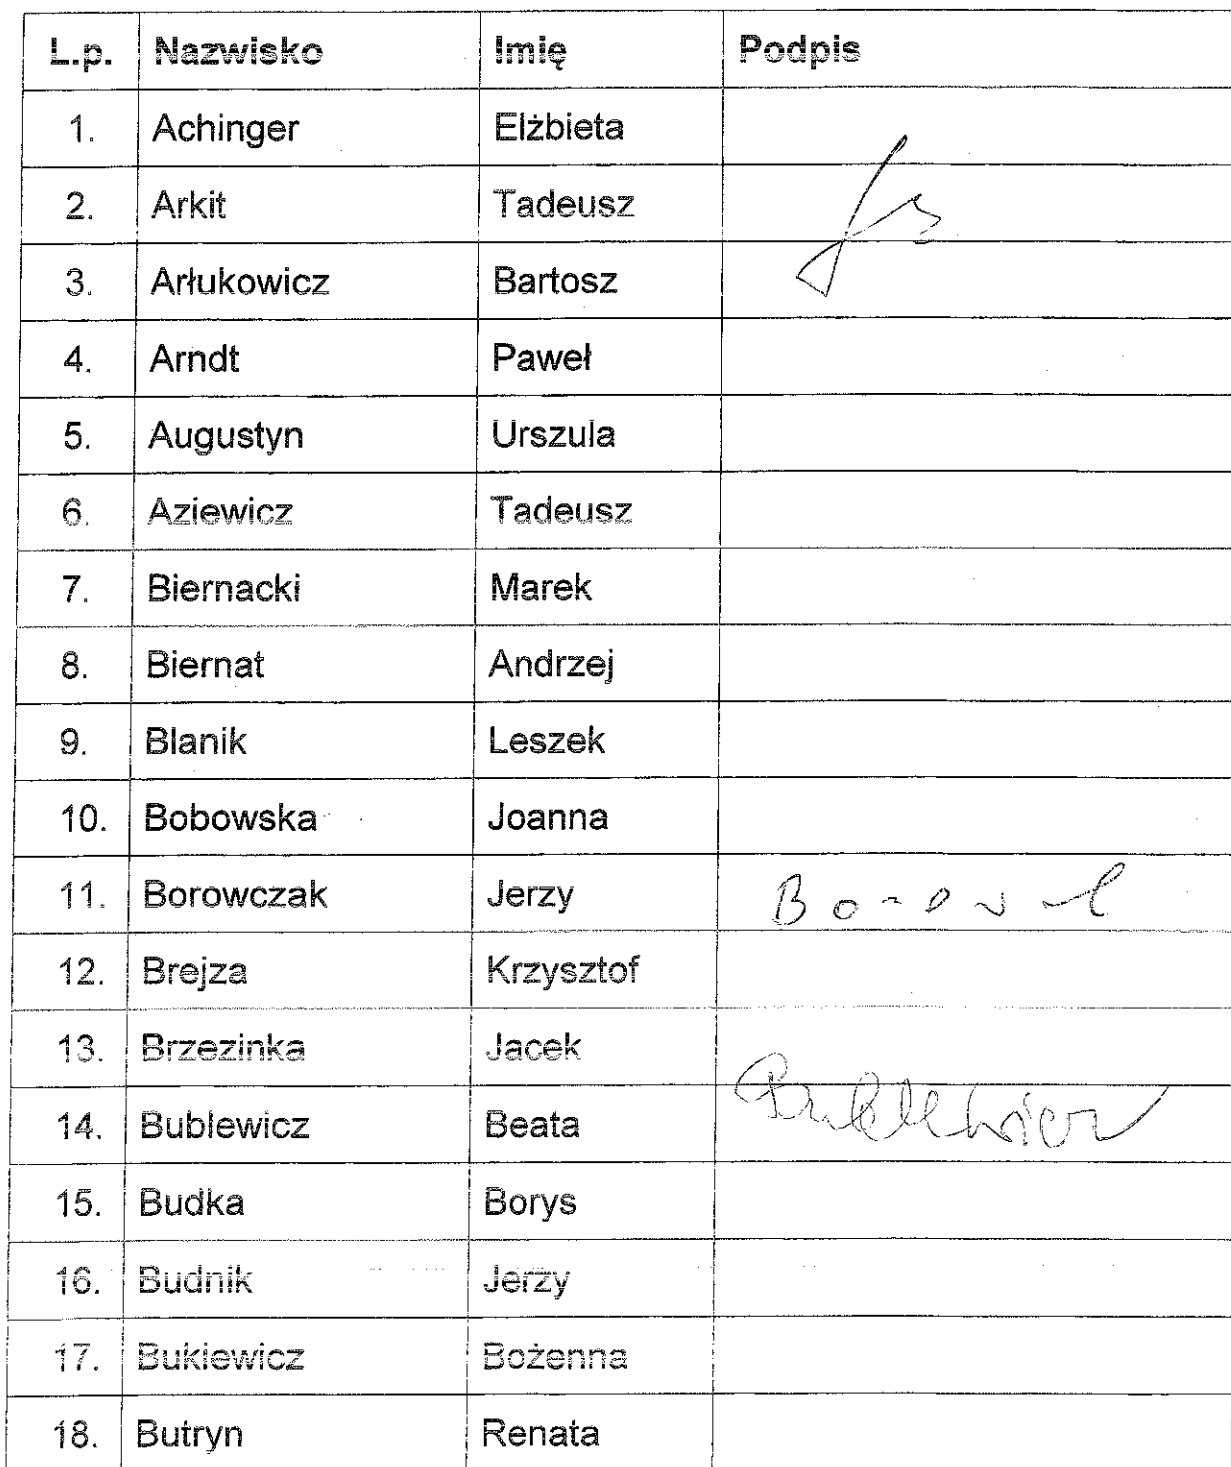 L.p. Nazwisko Imię Podpis
1. Achinger Elżbieta
2. Arkit Tadeusz
3. Arłukowicz Bartosz
4. Arndt Paweł
5. Augustyn Urszula
6. Aziewicz Tadeusz
7. Biernacki Marek
8. Biernat Andrzej
9. Blanik Leszek
10. Bobowska Joanna
11. Borowczak Jerzy
12. Brejza Krzysztof
13. Brzezinka Jacek
14. Bublewicz Beata Bublewicz
15. Budka Borys
16. Budnik Jerzy
17. Bukiewicz Bożenna
18. Butryn Renata